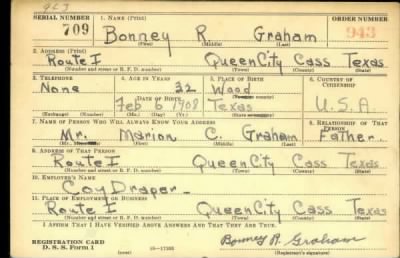 943
SERIAL NUMBER 1. NAME (Print) ORDER NUMBER
709 Bonney R Graham 943
(First) (Middle) (Last)
2. ADDRESS (Print)
Route I Queen City Cass Texas
(Number and street or R. F. D. number) (Town) (County) (State)
3. TELEPHONE 4. AGE IN YEARS 5. PLACE OF BIRTH 6. COUNTRY OF CITIZENSHIP
None 32 Wood
(Town or county)
DATE OF BIRTH
Feb 6 1908 Texas U.S.A
(Exchange) (Number) (Mo.) (Day) (Yr.) (State or country)
7. NAME OF PERSON WHO WILL ALWAYS KNOW YOUR ADDRESS 8. RELATIONSHIP OF THAT PERSON
Mr. Marion C. Graham Father
(Mr., Mrs., Miss) (First) (Middle) (Last)
9. ADDRESS OF THAT PERSON
Route I Queen City Cass Texas
(Number and street or R. F. D. number) (Town) (County) (State)
10. EMPLOYER'S NAME
Coy Draper
11. PLACE OF EMPLOYMENT OR BUSINESS
Route I Queen City Cass Texas
(Number and street or R. F. D. number) (Town) (County) (State)
I AFFIRM THAT I HAVE VERIFIED ABOVE ANSWERS AND THAT THEY ARE TRUE.
REGISTRATION CARD
D. S. S. Form 1 (over) Bonney R. Graham
(Registrant's signature)